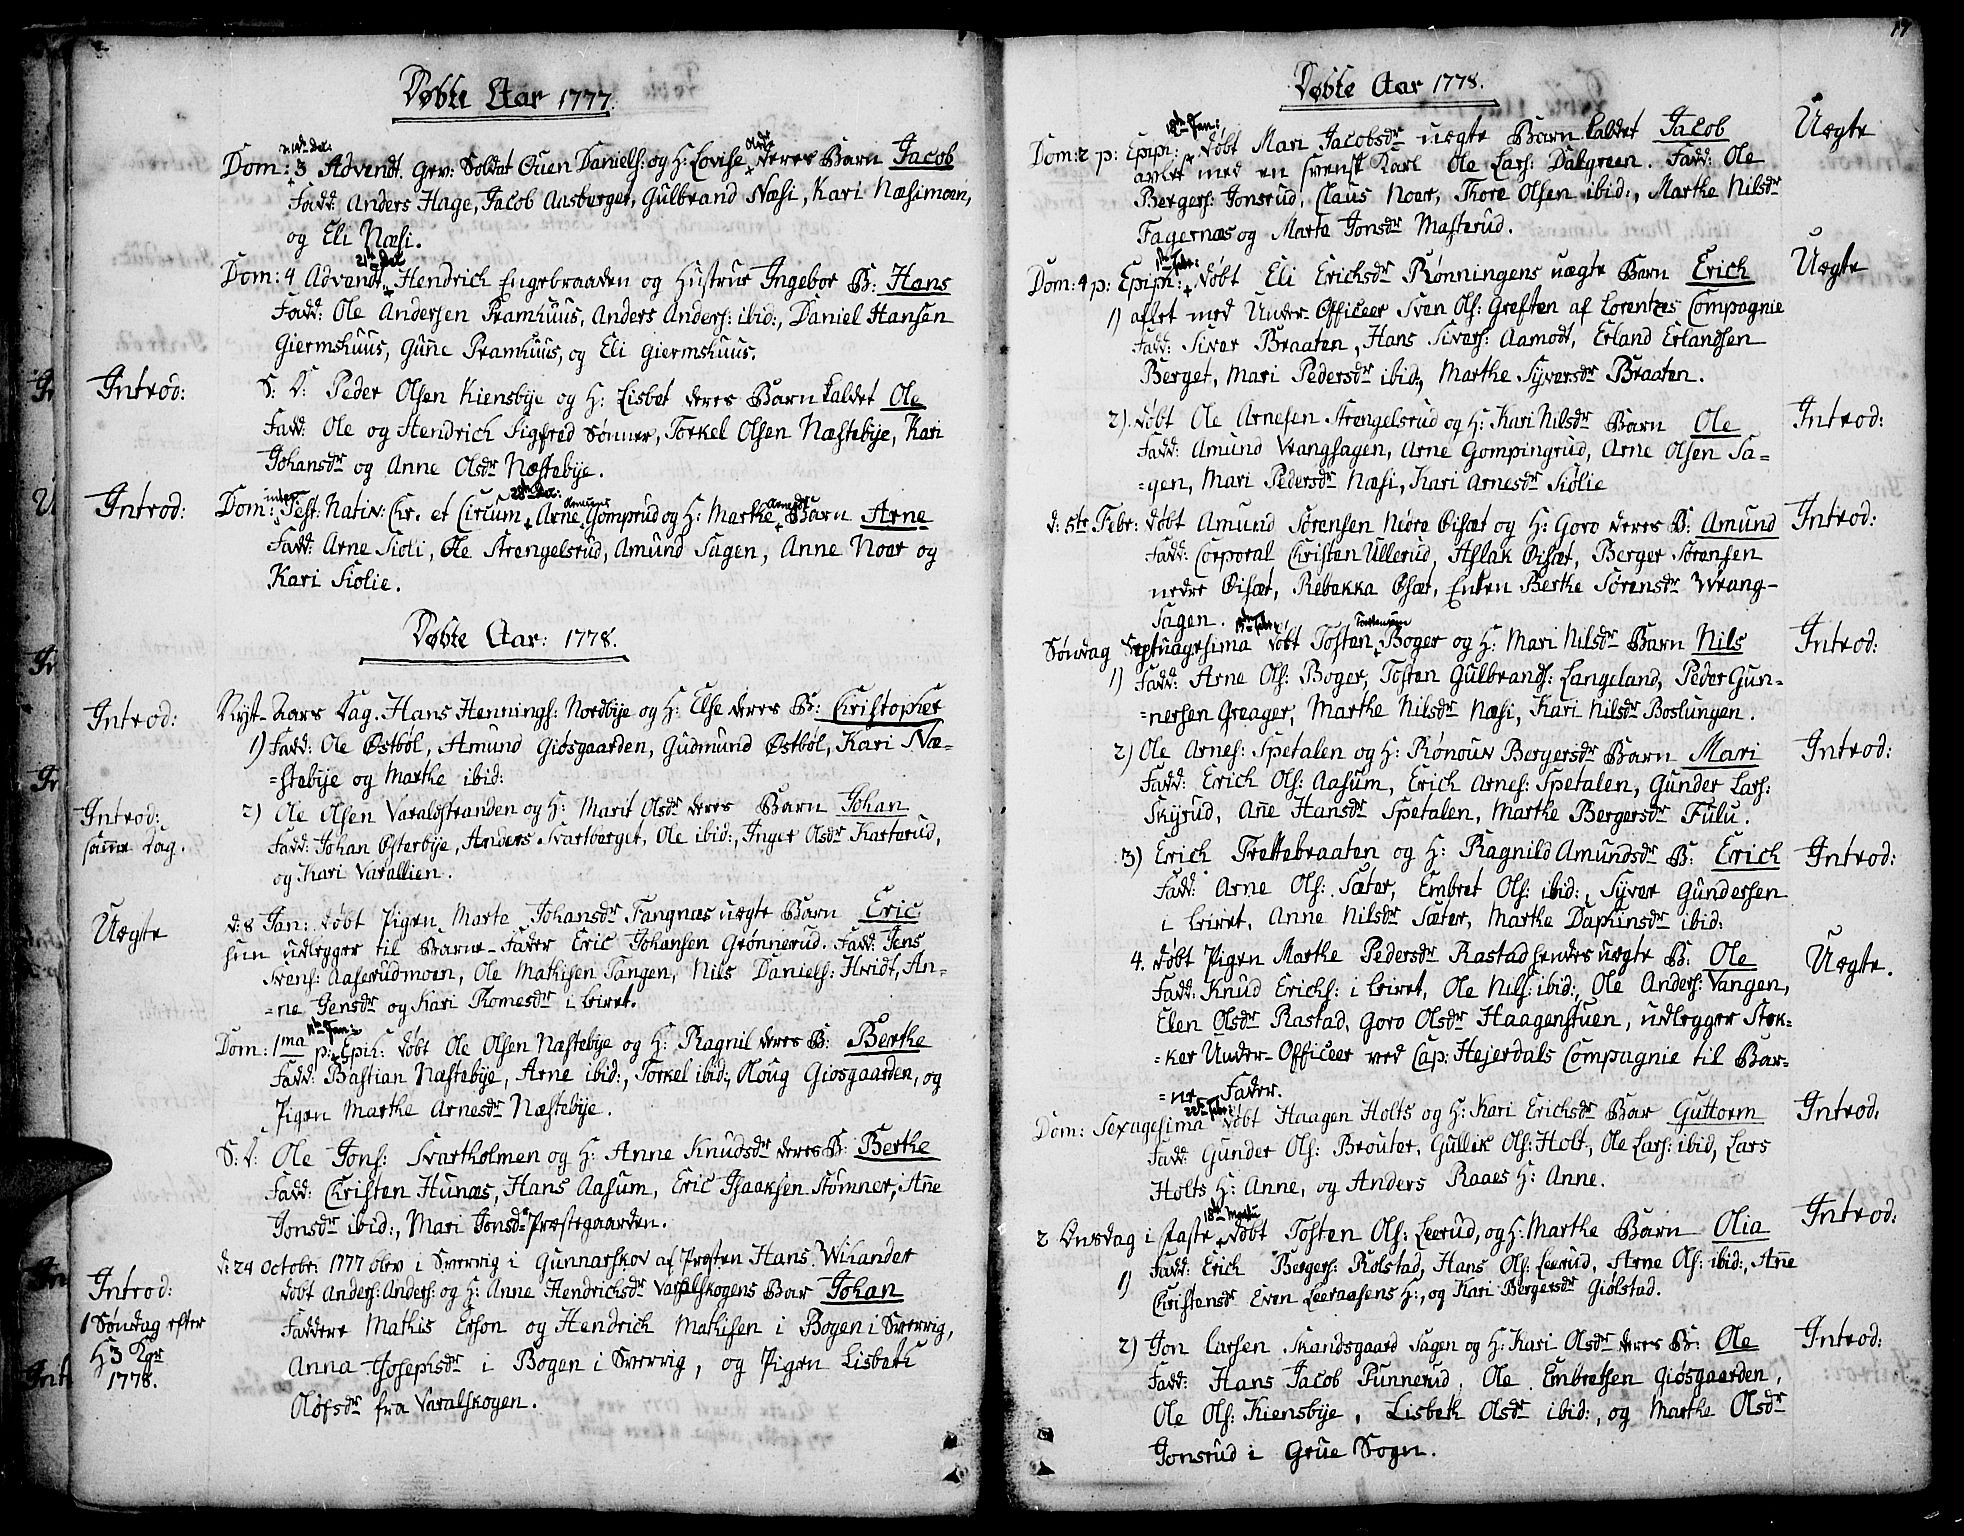 Døbte Aar 1777.
Dom: 3 Advendt. Gev: Soldat Ouen Daniels: og H: Lovise deres Barn Jacob
Fadd: Anders Hage, Jacob Aasberget, Gulbrand Næsi, Kari Næsimoen,
og Eli Næsi.
21de Dec
Dom: 4 Advendt, Hendrich Engebraaden og Hustrue Ingebor B: Hans
Fadd: Ole Andersen Pramhuus, Anders Anders: ibid:, Daniel Hansen
Giermshuus, Gune Pramhuus, og Eli Giermshuus.
Introd: S: D: Peder Olsen Kiensbye og H: Lisbet deres Barn kaldet Ole
Fadd: Ole og Hendrich Sigfred Sønner, Torkel Olsen Næstebye, Kari
Johansdr og Anne Olsdr Næstebye.
inter 28de Dec: Amunds: Arnesdr
Introd: Dom: Fest: Nativ: Chr. et Circum, Arne Gomprud og H: Marthe Barn Arne
Fadd: Arne Sioli, Ole Strengelsrud, Amund Sagen, Anne Noer og
Kari Siolie.
Døbte Aar: 1778.
Introd: Nyt-Aars Dag. Hans Hennings: Nordbye og H: Else deres B: Christopher
1) Fadd: Ole Østbøl, Amund Giøsgaarden, Gudmund Østbøl, Kari Næ-
=stebye og Marthe ibid:
Introd: 2) Ole Olsen Varaldstranden og H: Marit Olsdr deres Barn Johan
samme Dag. Fadd: Johan Østerbye, Anders Svartberget, Ole ibid:, Inger Olsdr Karterud,
og Kari Varallien.
Uægte d: 8 Jan: døbt Pigen Marte Johansdr Tangnæs uægte Barn Eric
hun udlegger til Barne-Fader Eric Johansen Grønnerud. Fadd: Jens
Svens: Aaserudmoen, Ole Mathisen Tangen, Nils Daniels: Hvidt, An-
=ne Jensdr og Kari Thomesdr i Leiret.
11te Jan:
Dom: 1ma p: Epih: døbt Ole Olsen Næstebye og H: Ragnil deres B: Berthe
Fadd: Bastian Næstebye, Arne ibid:, Torkel ibid:, Oloug Giosgaarden, og
Pigen Marthe Arnesdr Næstebye.
S: D: Ole Jons: Svartholmen og H: Anne Knudsdr deres B: Berthe
Fadd: Christen Hunæs, Hans Aasum, Eric Isaaksen Stømner, Ane
Jonsdr ibid:, Mari Jonsdr Præstegaarden.
d: 24 Octobr: 1777 blev i Sverrig i Gunnarskov af Præsten Hans Wihander
Introd: døbt Anders: Anders: og H: Anne Hendrichsdr Varalskogens Bar Johan
1 Søndag efter Faddere Mathis Erson og Hendrich Mathisen i Bogen i Sverrig,
H 3 Kgr Anna Josephsdr i Bogen i Sverrig, og Pigen Lisbeth
1778. Olofsdr fra Varalskogen.
17
Døbte Aar 1778.
18de Jan:
Dom: 2 p: Epiph: døbt Mari Jacobsdr uægte Barn kaldet Jacob Uægte
avlet med en svensk Karl Ole Lars: Dalgreen. Fadd: Ole
Bergers: Jonsrud, Claus Noer, Thore Olsen ibid:, Marthe Nilsdr
Fagernæs og Marte Jonsdr Masterud.
1ste Febr:
Dom: 4 p: Epiph: døbt Eli Erichsdr Rønningens uægte Barn Erich Uægte
1) aflet med Under-Officeer Sven Ols: Greften af Lorentzes Compagnie
Fadd: Siver Braaten, Hans Sivers: Aamodt, Erland Erlandsen
Berget, Mari Pedersdr ibid:, Marthe Syversdr Braaten.
2). døbt Ole Arnesen Strengelsrud og H: Kari Nilsdr Barn Ole Introd:
Fadd: Amund Vranghagen, Arne Gompingrud, Arne Olsen Sa=
=gen, Mari Pedersdr Næsi, Kari Arnesdr Siolie
d: 5te Febr: døbt Amund Sørensen Niøre Øisæt og H: Goro deres B: Amund Introd:
Fadd: Corporal Christen Ullerud, Aslak Øisæt, Berger Sørensen
nedre Øisæt, Rebekka Øisæt, Enken Berthe Sørensdr Wrang-
Sagen.
15de Febr: Torstensen
Søndag Septuagesima døbt Tosten Boger og H: Mari Nilsdr Barn Nils Introd:
1) Fadd: Arne Ols: Boger, Tosten Gulbrands: Langeland, Peder Gun-
=nersen Greager, Marthe Nilsdr Næsi, Kari Nilsdr Boslungen.
2) Ole Arnes: Spetalen og H: Rønouv Bergersdr Barn Mari Introd:
Fadd: Erich Ols: Aasum, Erich Arnes: Spetalen, Gunder Lars:
Skyrud, Ane Hansdr Spetalen, Marthe Bergersdr Fulu.
3) Erich Trettebraaten og H: Ragnild Amundsdr B: Erich Introd:
Fadd: Arne Ols: Sæter, Embret Ols: ibid:, Syver Gundersen
i Leiret, Anne Nilsdr Sæter, Marthe Dapkinsdr ibid:
4. døbt Pigen Marthe Pedersdr Rastad hendes uægte B: Ole Uægte.
Fadd: Knud Erichs: i Leiret, Ole Nils: ibid:, Ole Anders: Vangen,
Elen Olsdr Rastad, Goro Olsdr Haagenstuen, udlegger Støk-
=ker Under-Officeer ved Cap: Hejerdals Compagnie til Bar-
=ne-Fader.
22de Febr:
Dom: Sexagesima døbt Haagen Holts og H: Kari Erichsdr Bar Guttorm Introd:
Fadd: Gunder Ols: Brouter, Gullik Ols: Holt, Ole Lars: ibid, Lars
Holts H: Anne, og Anders Raaes H: Anne.
18de Martii
2 Onsdag i Faste døbt Tosten Ols: Leerud, og H: Marthe Barn Olia Introd:
1) Fadd: Erich Bergers: Rolstad, Hans Ols: Leerud, Arne Ols: ibid:, Ane
Christensdr Even Leeraasens H:, og Kari Bergersdr Giølstad.
2) Jon Larsen Skandsgaard Sagen og H: Kari Olsdr deres B: Ole Introd:
Fadd: Hans Jacob Punnerud, Ole Embretsen Giøsgaarden,
Ole Ols: Kiensbye, Lisbeth Olsdr ibid:, og Marthe Olsdr
Jonsrud i Grue Sogn.